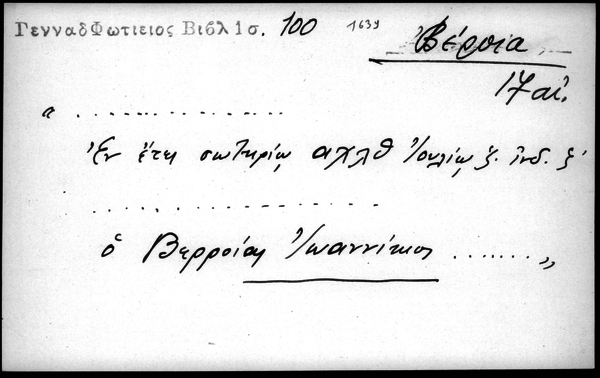 ΓενναδΦωτιειος Βιβλ 1σ. 100 1639 Βέροια
17 αἰ.
" ....................
Ἐν ἔτει σωτηρίῳ αχλθ Ἰουλίῳ ξ. ἰνδ. ξ'
....................
ὁ Βερροίας Ἰωαννίκιος .......... "